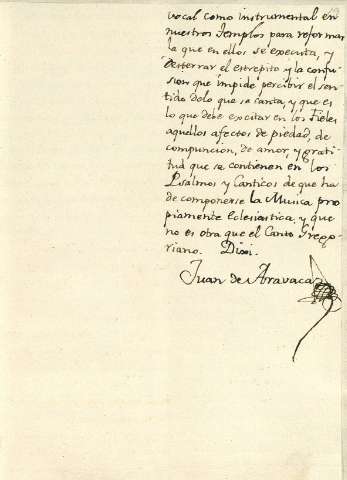 vocal como instrumental en
nuestros Templos para reformar
la que en ellos se executa, y
desterrar el estrepito y la confu
sion que impide percibir el sen
tido delo que se canta, y que es
lo que debe excitar en los Fieles
aquellos afectos de piedad, de
compuncion, de amor, y grati
tud que se contienen en los
Psalmos y Canticos de que ha
de componerse la Musica pro
piamente Eclesiastica, y que
no es otra que el Canto Grego
riano.
Juan de Aravaca